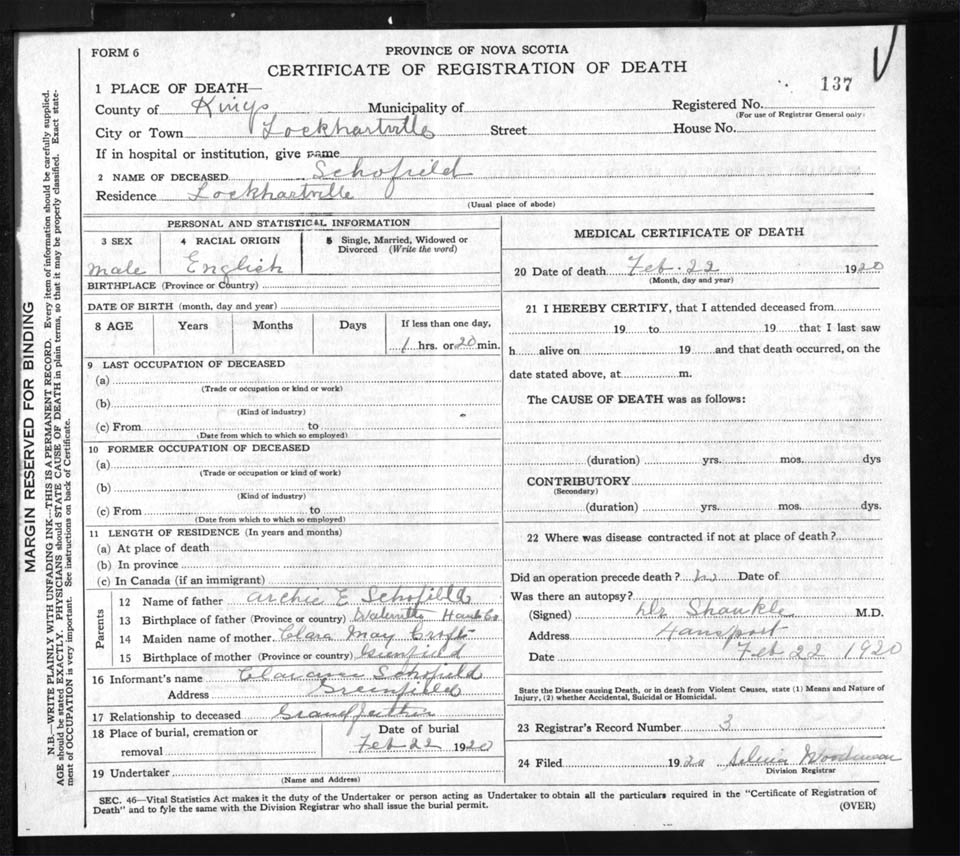 FORM 6
PROVINCE OF NOVA SCOTIA
CERTIFICATE OF REGISTRATION OF DEATH
137
1 PLACE OF DEATH—
County of Kings Municipality of Registered No.
(For use of Registrar General only)
City or Town Lockhartville Street House No.
If in hospital or institution, give name
2 NAME OF DECEASED Schofield
Residence Lockhartville
(Usual place of abode)
PERSONAL AND STATISTICAL INFORMATION
3 SEX 4 RACIAL ORIGIN 5 Single, Married, Widowed or
Divorced (Write the word)
male English
BIRTHPLACE (Province or Country)
DATE OF BIRTH (month, day and year)
8 AGE Years Months Days If less than one day,
1 hrs. or 20 min.
9 LAST OCCUPATION OF DECEASED
(a)
(Trade or occupation or kind or work)
(b)
(Kind of industry)
(c) From to
(Date from which to which so employed)
10 FORMER OCCUPATION OF DECEASED
(a)
(Trade or occupation or kind of work)
(b)
(Kind of industry)
(c) From to
(Date from which to which so employed)
11 LENGTH OF RESIDENCE (In years and months)
(a) At place of death
(b) In province
(c) In Canada (if an immigrant)
Parents
12 Name of father Archie E Schofield
13 Birthplace of father (Province or country) Hants Co
14 Maiden name of mother Clara May Croft
15 Birthplace of mother (Province or country)
16 Informant's name Clarance Schofield
Address Greenfield
17 Relationship to deceased Grandfather
18 Place of burial, cremation or
removal
Date of burial
Feb 22 1920
19 Undertaker
(Name and Address)
MEDICAL CERTIFICATE OF DEATH
20 Date of death Feb. 22 1920
(Month, day and year)
21 I HEREBY CERTIFY, that I attended deceased from
19 to 19 that I last saw
h alive on 19 and that death occurred, on the
date stated above, at m.
The CAUSE OF DEATH was as follows:
(duration) yrs. mos. dys
CONTRIBUTORY
(Secondary)
(duration) yrs. mos. dys.
22 Where was disease contracted if not at place of death?
Did an operation precede death? Date of
Was there an autopsy?
(Signed) Dr Shankle M.D.
Address Hantsport
Date Feb 22 1920
State the Disease causing Death, or in death from Violent Causes, state (1) Means and Nature of
Injury, (2) whether Accidental, Suicidal or Homicidal.
23 Registrar's Record Number 3
24 Filed 1920 Woodman
Division Registrar
SEC. 46—Vital Statistics Act makes it the duty of the Undertaker or person acting as Undertaker to obtain all the particulars required in the "Certificate of Registration of
Death" and to fyle the same with the Division Registrar who shall issue the burial permit.
(OVER)
MARGIN RESERVED FOR BINDING
N.B.—WRITE PLAINLY WITH UNFADING INK—THIS IS A PERMANENT RECORD. Every item of information should be carefully supplied.
AGE should be stated EXACTLY. PHYSICIANS should STATE CAUSE OF DEATH in plain terms, so that it may be properly classified. Exact state-
ment of OCCUPATION is very important. See instructions on back of Certificate.